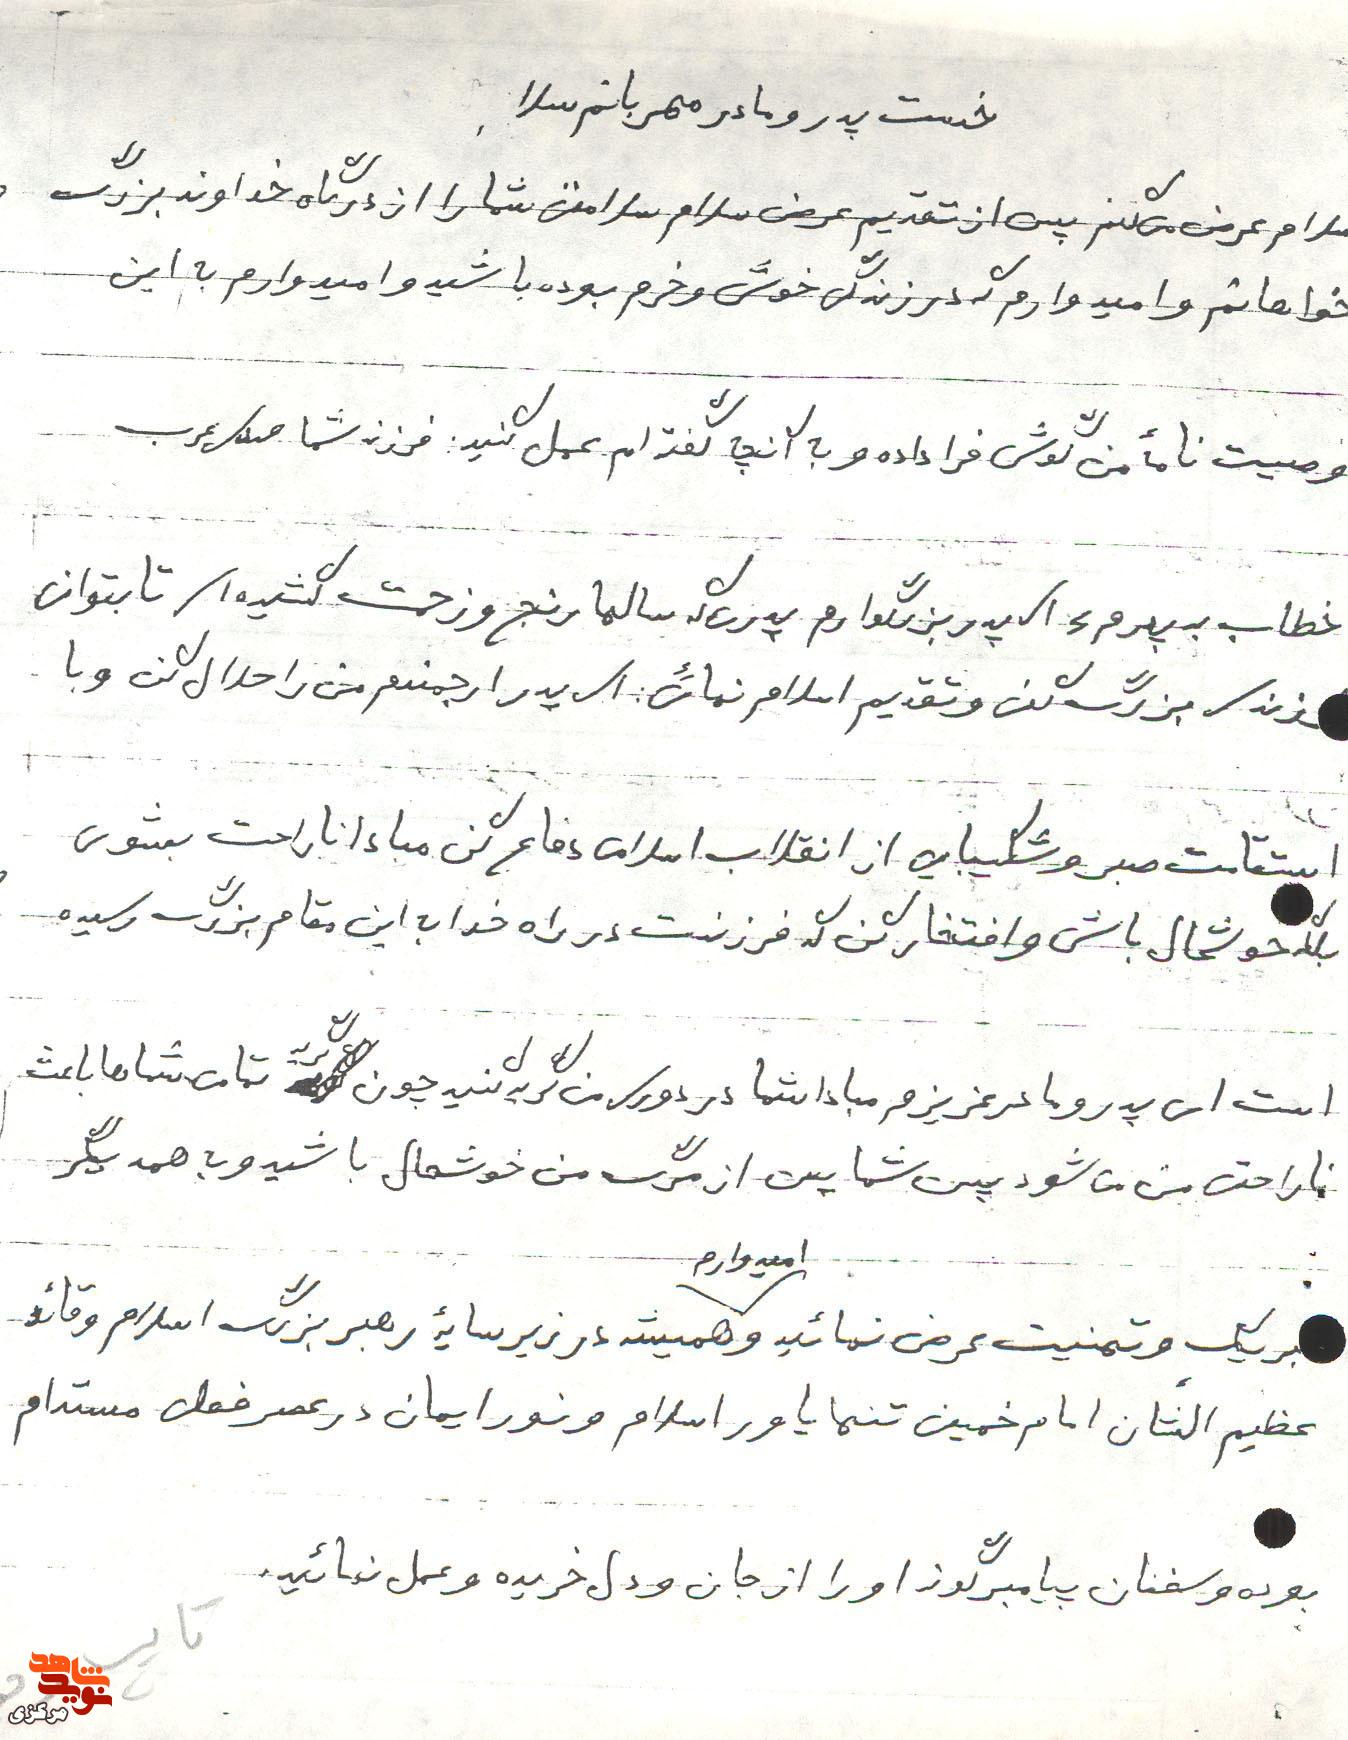 خدمت پدر و مادر مهربانم سلام
سلام عرض می‌کنم پس از تقدیم عرض سلام سلامتی شما را از درگاه خداوند بزرگ
خواهانم و امیدوارم که در زندگی خوش و خرم بوده باشید و امیدوارم به این
وصیت نامهٔ من گوش فرا داده و به آنچه گفته ام عمل کنید. فرزند شما عرب
خطاب به پدرم ای پدر بزرگوارم پدری که سالها رنج و زحمت کشیده ای تا بتوانی
فرزندی بزرگ کنی و تقدیم اسلام نمائی. ای پدر ارجمندم من را حلال کن و با
استقامت صبر و شکیبایی از انقلاب اسلامی دفاع کن مبادا ناراحت بشوی
بلکه خوشحال باش و افتخار کن که فرزندت در راه خدا به این مقام بزرگ رسیده
است ای پدر و مادر عزیزم مبادا شما در دوری من گریه کنید چون گریه تمامی شماها باعث
ناراحتی من می شود پس شما پس از مرگ من خوشحال باشید و به همدیگر
امیدوارم
تبریک و تهنیت عرض نمائید و همیشه در زیر سایهٔ رهبر بزرگ اسلام و قائد
عظیم الشأن امام خمینی تنها یاور اسلام و نور ایمان در عصر فعلی مستدام
بوده و سخنان پیامبرگونه او را از جان و دل خریده و عمل نمائید.
تایپ
نوید شاهد
مرکزی